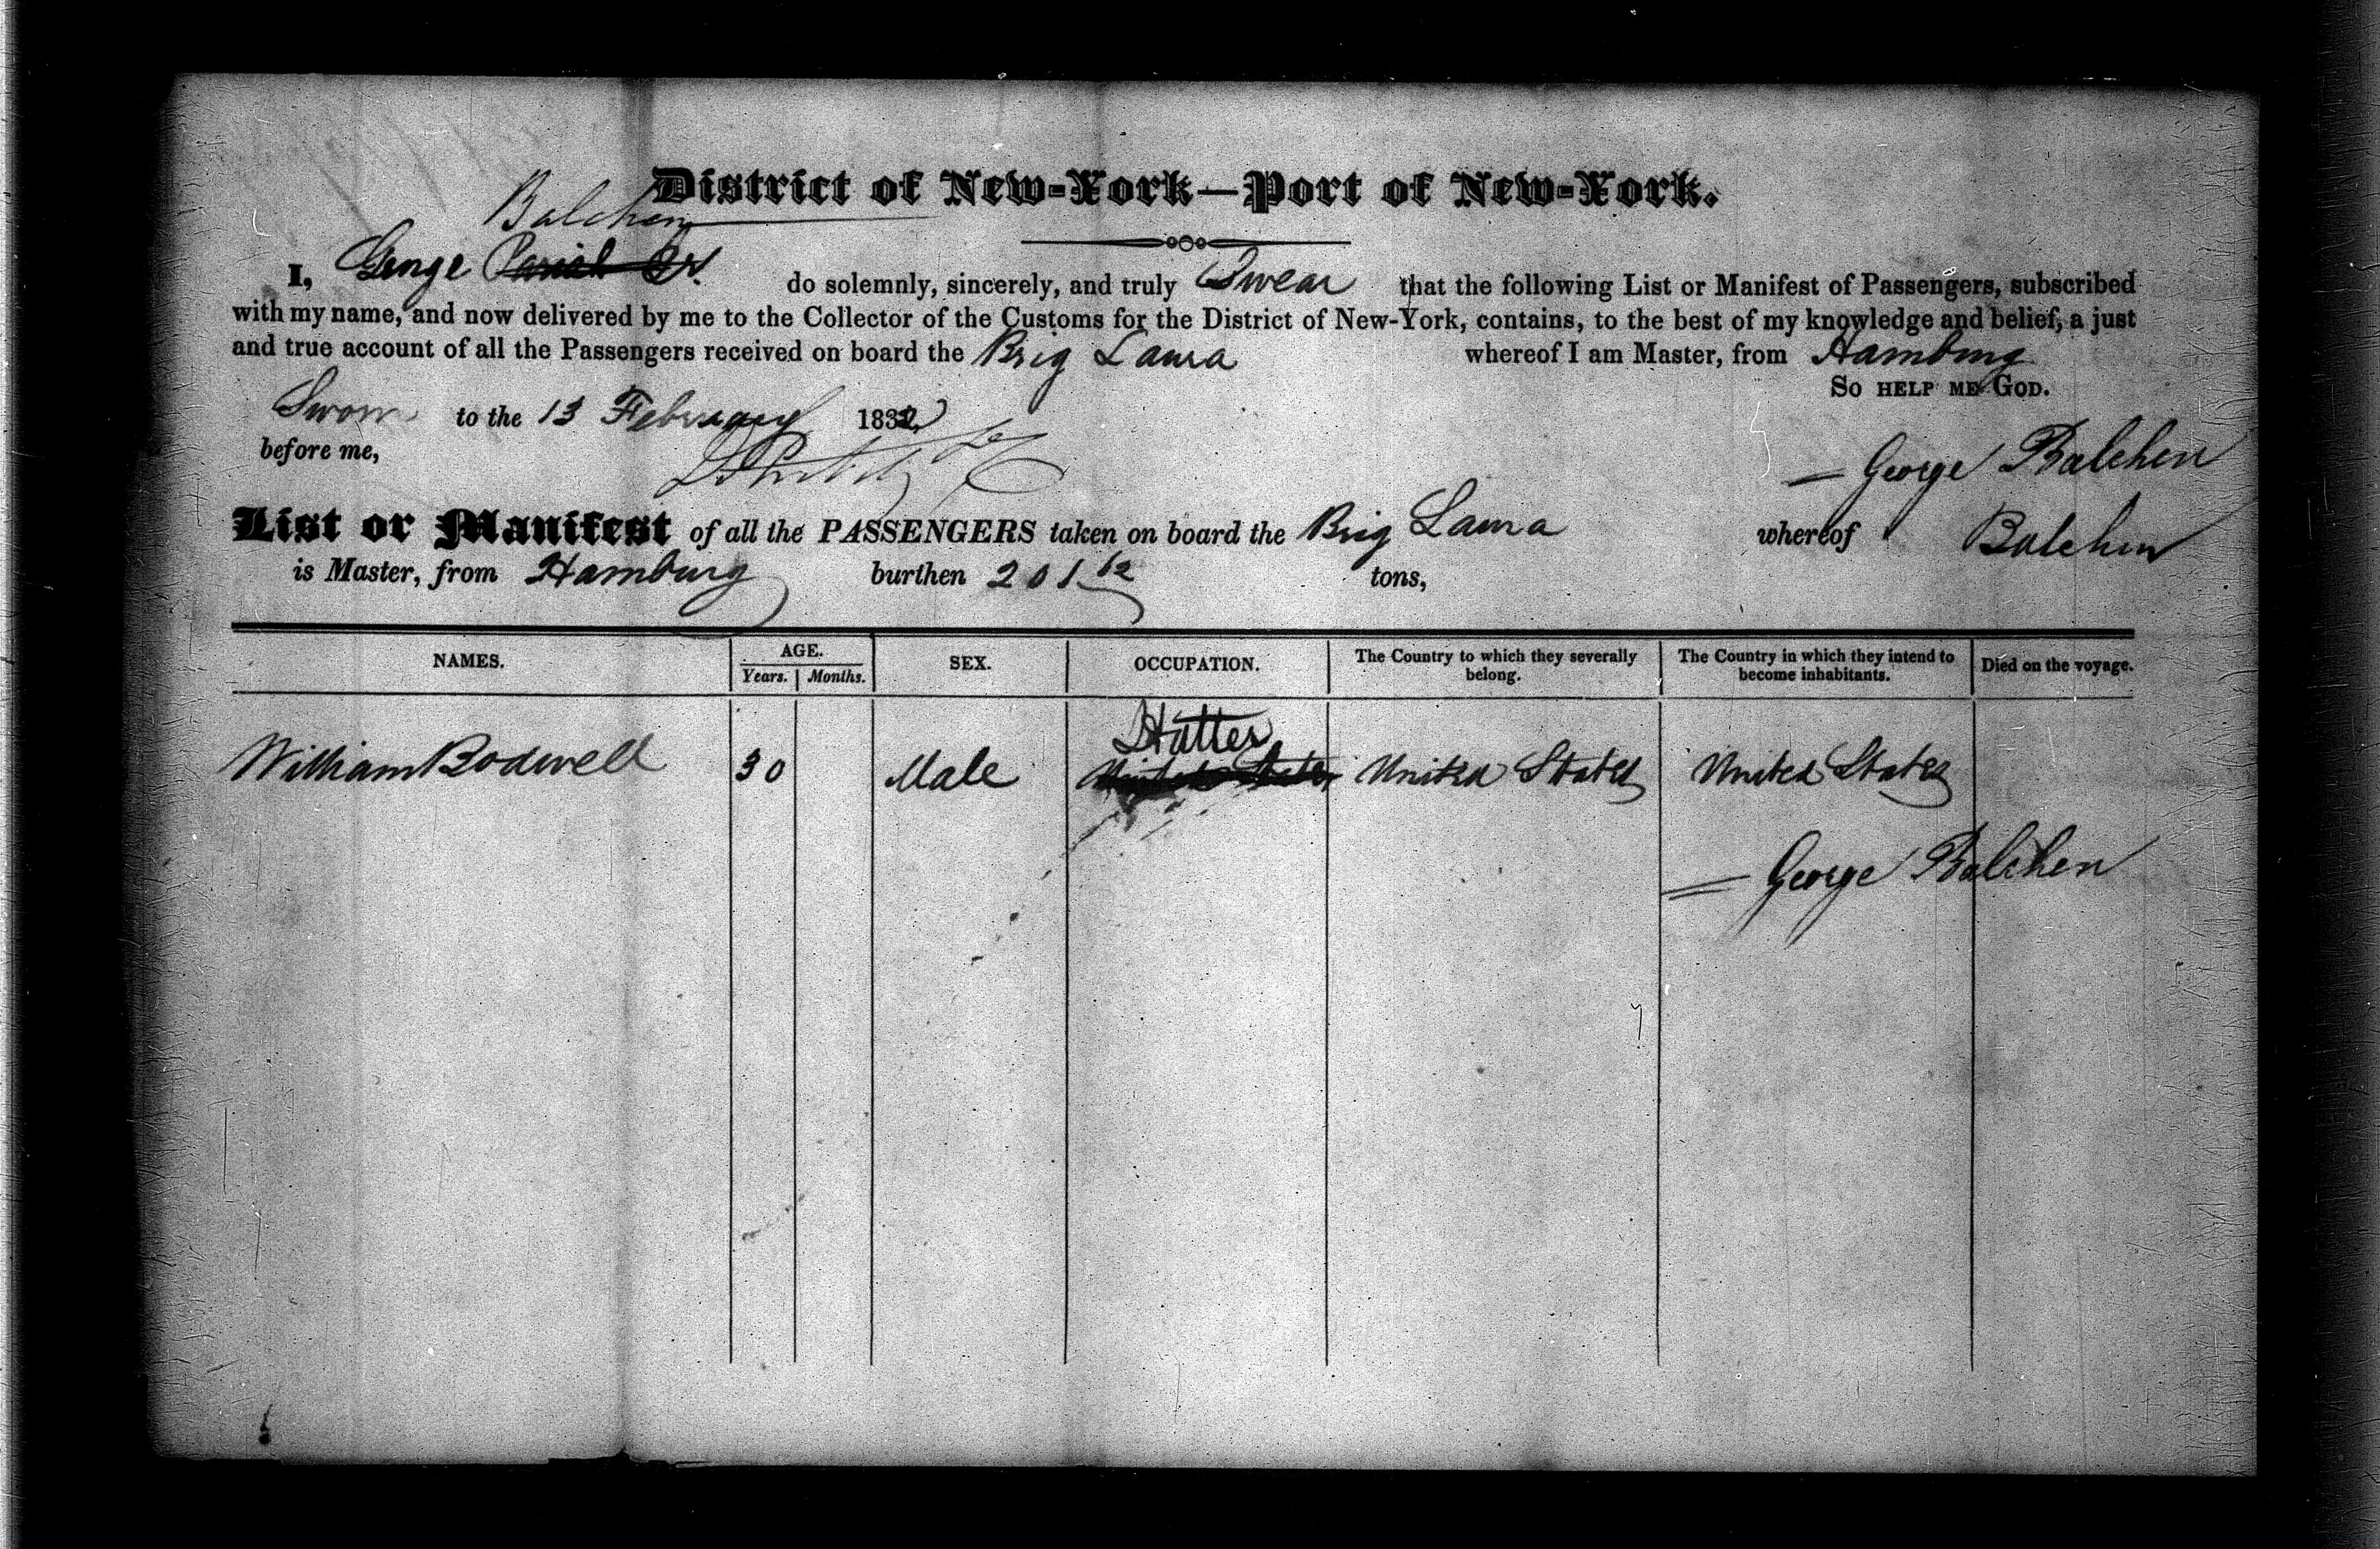 District of New-York—Port of New-York.
Balchen
I, George do solemnly, sincerely, and truly Swear that the following List or Manifest of Passengers, subscribed
with my name, and now delivered by me to the Collector of the Customs for the District of New-York, contains, to the best of my knowledge and belief, a just
and true account of all the Passengers received on board the Brig Laura whereof I am Master, from Hamburg
SO HELP ME GOD.
Sworn to the 13 February 1832
before me,
George Balchen
List or Manifest of all the PASSENGERS taken on board the Brig Laura whereof Balchen
is Master, from Hamburg burthen 201 tons,
NAMES. AGE. SEX. OCCUPATION. The Country to which they severally belong. The Country in which they intend to become inhabitants. Died on the voyage.
Years. Months.
Hatter
William Bodwell 30 Male United States United States
George Balchen